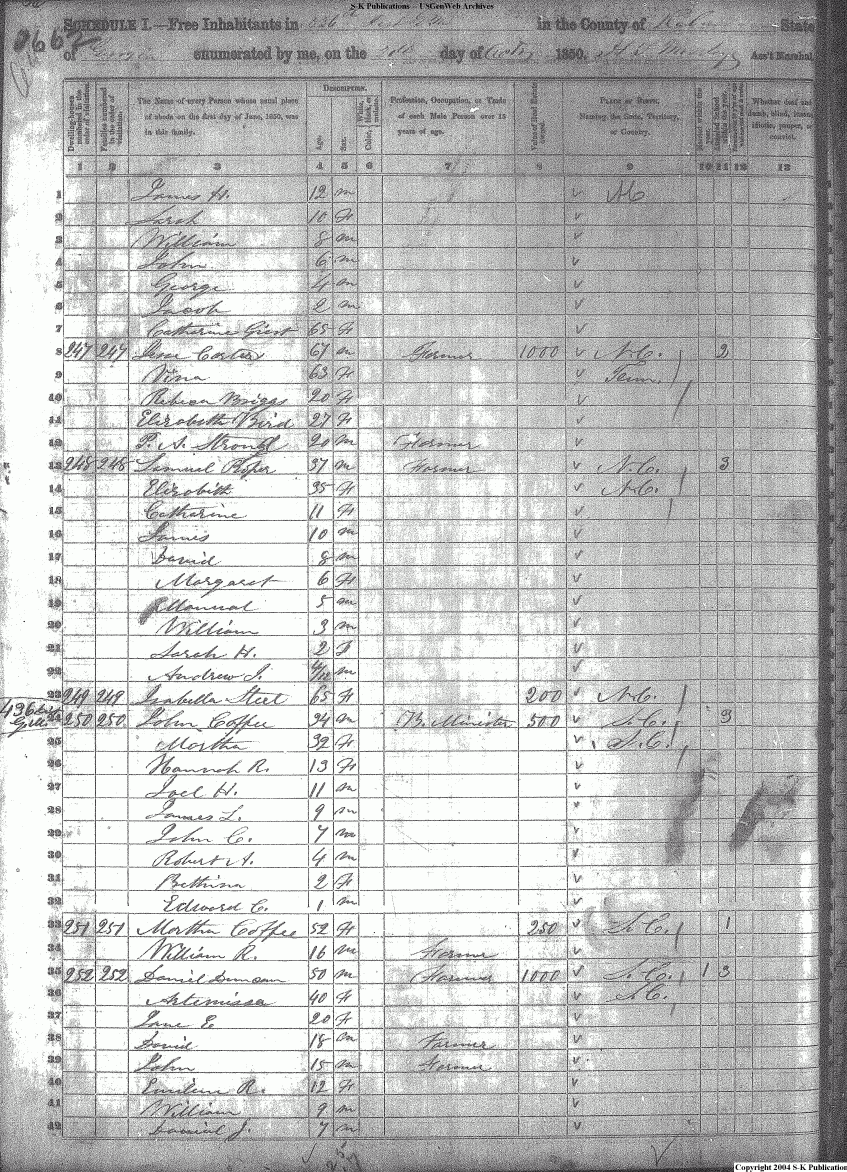 S-K Publications - USGenWeb Archives
SCHEDULE I.—Free Inhabitants in in the County of State
of Georgia enumerated by me, on the day of 1850. Ass't Marshal
Dwelling-houses numbered in the order of visitation.
Families numbered in the order of visitation.
The Name of every Person whose usual place of abode on the first day of June, 1850, was in this family.
DESCRIPTION.
Age.
Sex.
Color, White, black, or mulatto.
Profession, Occupation, or Trade of each Male Person over 15 years of age.
Value of Real Estate owned.
PLACE OF BIRTH. Naming the State, Territory, or Country.
Married within the year.
Whether deaf and dumb, blind, insane, idiotic, pauper, or convict.
1 2 3 4 5 6 7 8 9 10 11 12 13
1 James H. 12 m v
2 Sarah 10 F v
3 William 8 m v
4 John 6 m v
5 George 4 m v
6 Jacob 2 m v
7 Catharine Giest 65 F v
8 247 247 Jesse Carter 67 m Farmer 1000 v N.C. 2
9 Vina 63 F v Tenn.
10 Rebeca Briggs 20 F v
11 Elizabeth Bird 27 F v
12 P. A. Strond 20 m Farmer v
13 248 248 Samuel Roper 37 m Farmer v N.C. 3
14 Elizabeth 35 F v N.C.
15 Catharine 11 F v
16 James 10 m v
17 David 8 m v
18 Margaret 6 F v
19 Manual 5 m v
20 William 3 m v
21 Sarah H. 2 F v
22 Andrew J. 4/12 m v
23 249 249 Isabella Steet 65 F 200 v N.C.
24 250 250 John Coffee 34 m B. Minister 500 v S.C. 3
25 Martha 32 F v S.C.
26 Hannah R. 13 F v
27 Joel H. 11 m v
28 James L. 9 m v
29 John C. 7 m v
30 Robert A. 4 m v
31 Bethina 2 F v
32 Edward C. 1 m v
33 251 251 Martha Coffee 52 F 250 v S.C. 1
34 William R. 16 m Farmer v
35 252 252 Daniel Duncan 50 m Farmer 1000 v S.C. 1 3
36 Artemissa 40 F v N.C.
37 Jane E 20 F v
38 David 18 m Farmer v
39 John 15 m Farmer v
40 Emiline R. 12 F v
41 William 9 m v
42 Danial J. 7 m v
Copyright 2004 S-K Publications